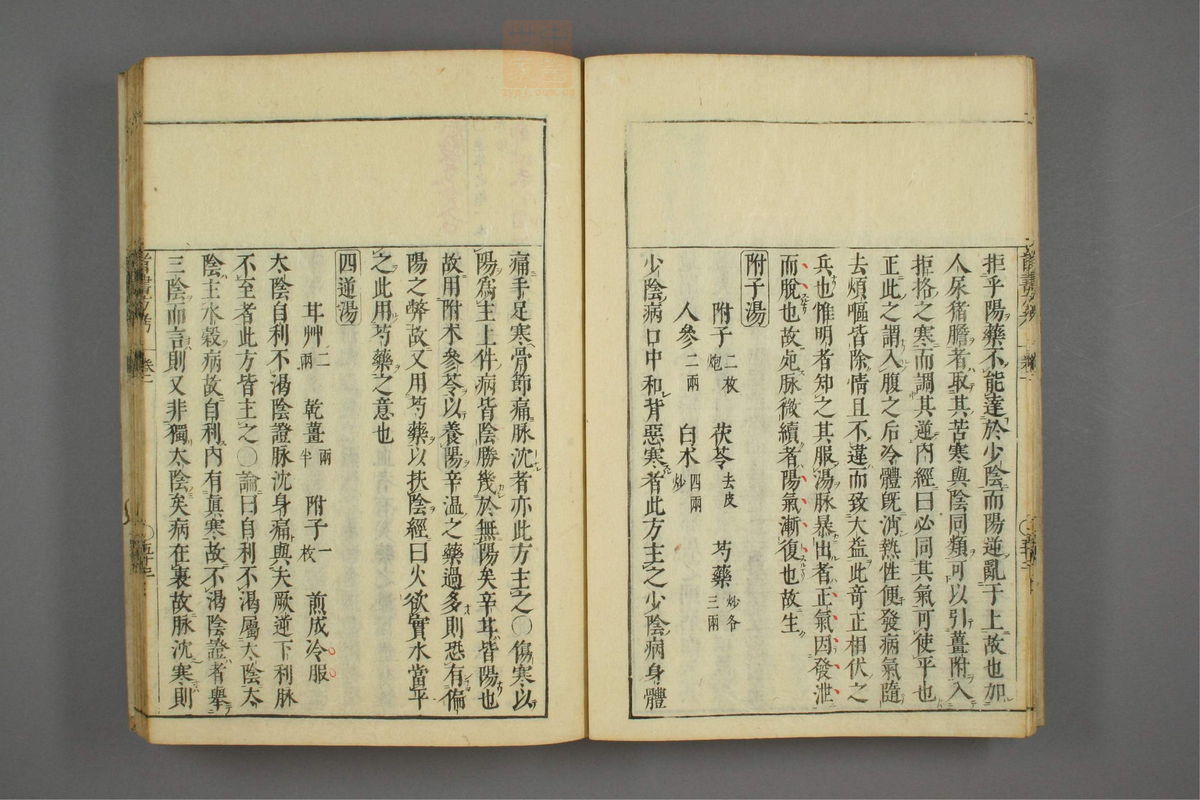 拒乎陽藥不能達於少陰而陽逆亂于上故也加
人尿猪膽者取其苦寒與陰同類可以引薑附入
拒挌之寒而調其逆內經曰必同其氣可使平也
正此之謂入腹之后冷體旣消熱性便發病氣隨
去煩嘔皆除情且不違而致大益此竒正相伏之
兵也惟明者知之其服湯脉暴出者正氣因發泄
而脫也故処脉微續者陽氣漸復也故生
附子湯
附子二枚炮 茯苓去皮 芍藥炒各三兩
人參二兩 白术四兩炒
少陰病口中和背惡寒者此方主之少陰病身體
痛手足寒骨節痛脉沈者亦此方主之○傷寒以
陽爲主上件病皆陰勝幾於無陽矣辛甘皆陽也
故用附术參苓以養陽辛溫之藥過多則恐有偏
陽之弊故又用芍藥以扶陰經曰火欲實水當平
之此用芍藥之意也
四逆湯
甘艸二兩 乾薑兩半 附子一枚 煎成冷服
太陰自利不渴陰證脉沈身痛與夫厥逆下利脉
不至者此方皆主之○論曰自利不渴屬太陰太
陰主水穀病故自利內有真寒故不渴陰證者舉
三陰而言則又非獨太陰矣病在裏故脉沈寒則